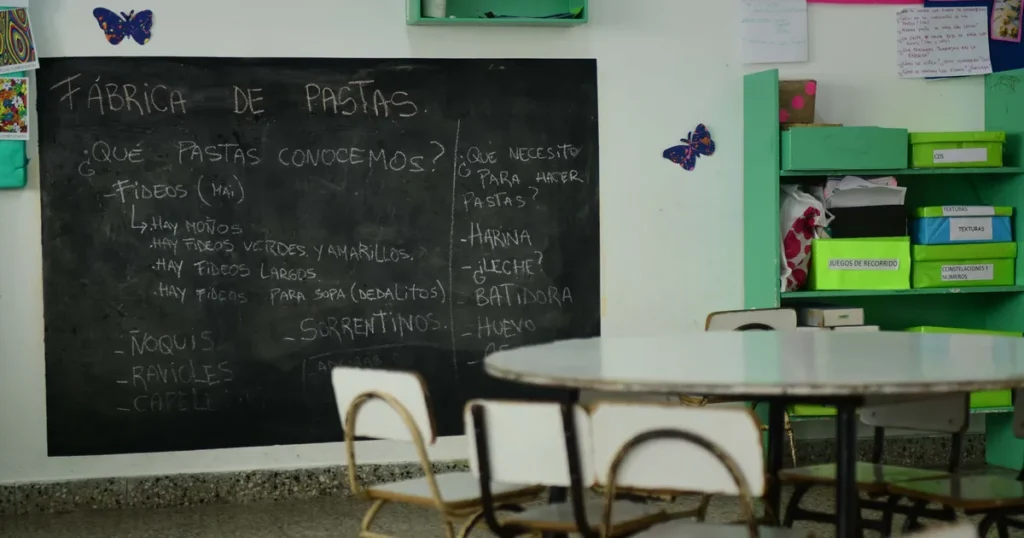 FÁBRICA DE PASTAS.
¿QUÉ PASTAS CONOCEMOS?
-FIDEOS (MAI)
↳.HAY MOÑOS
.HAY FIDEOS VERDES Y AMARILLOS.
.HAY FIDEOS LARGOS.
.HAY FIDEOS PARA SOPA (DEDALITOS)
-ÑOQUIS
-SORRENTINOS.
-RAVIOLES
¿QUE NECESITO
PARA HACER
PASTAS?
-HARINA
-¿LECHE?
-BATIDORA
-HUEVO
CDS
TEXTURAS
TEXTURAS
JUEGOS DE RECORRIDO
CONSTELACIONES Y
NÚMEROS